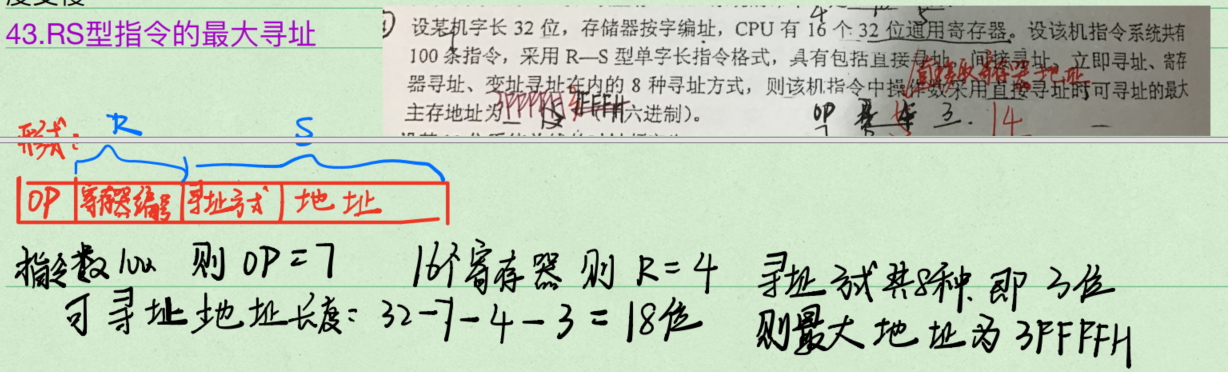 43.RS型指令的最大寻址
设某机字长 32 位，存储器按字编址，CPU 有 16 个 32 位通用寄存器。设该机指令系统共有
100 条指令，采用 R—S 型单字长指令格式，具有包括直接寻址、间接寻址、立即寻址、寄存
器寻址、变址寻址在内的 8 种寻址方式，则该机指令中操作数采用直接寻址时可寻址的最大
主存地址为 (十六进制)。
OP 3. 14
形式:
R S
OP 寄存器编号 寻址方式 地址
指令数100 则 OP=7 16个寄存器 则 R=4 寻址方式共8种 即 3位
可寻址地址长度: 32-7-4-3=18位 则最大地址为 3FFFFH